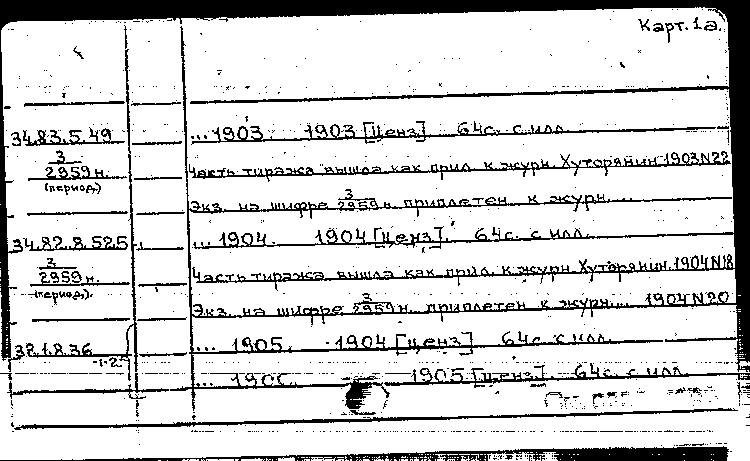 Карт. 1а.
34.83.5.49 ...1903 1903 [Ценз] 64с. с илл.
3 Часть тиража вышла как прил. к журн. Хуторянин 1903 N22
2959н.
(период.)
Экз. на шифре 3/2959н. приплетен к журн....
34.82.8.525 ... 1904. 1904 [ценз]. 64с. с илл.
3 Часть тиража вышла как прил. к журн. Хуторянин. 1904 N18
2959н.
(период.).
Экз. на шифре 3/2959н. приплетен к журн.... 1904 N20
... 1905. 1904 [ценз] 64с с илл.
-1-2
... 1905 [ценз]. 64с. с илл.